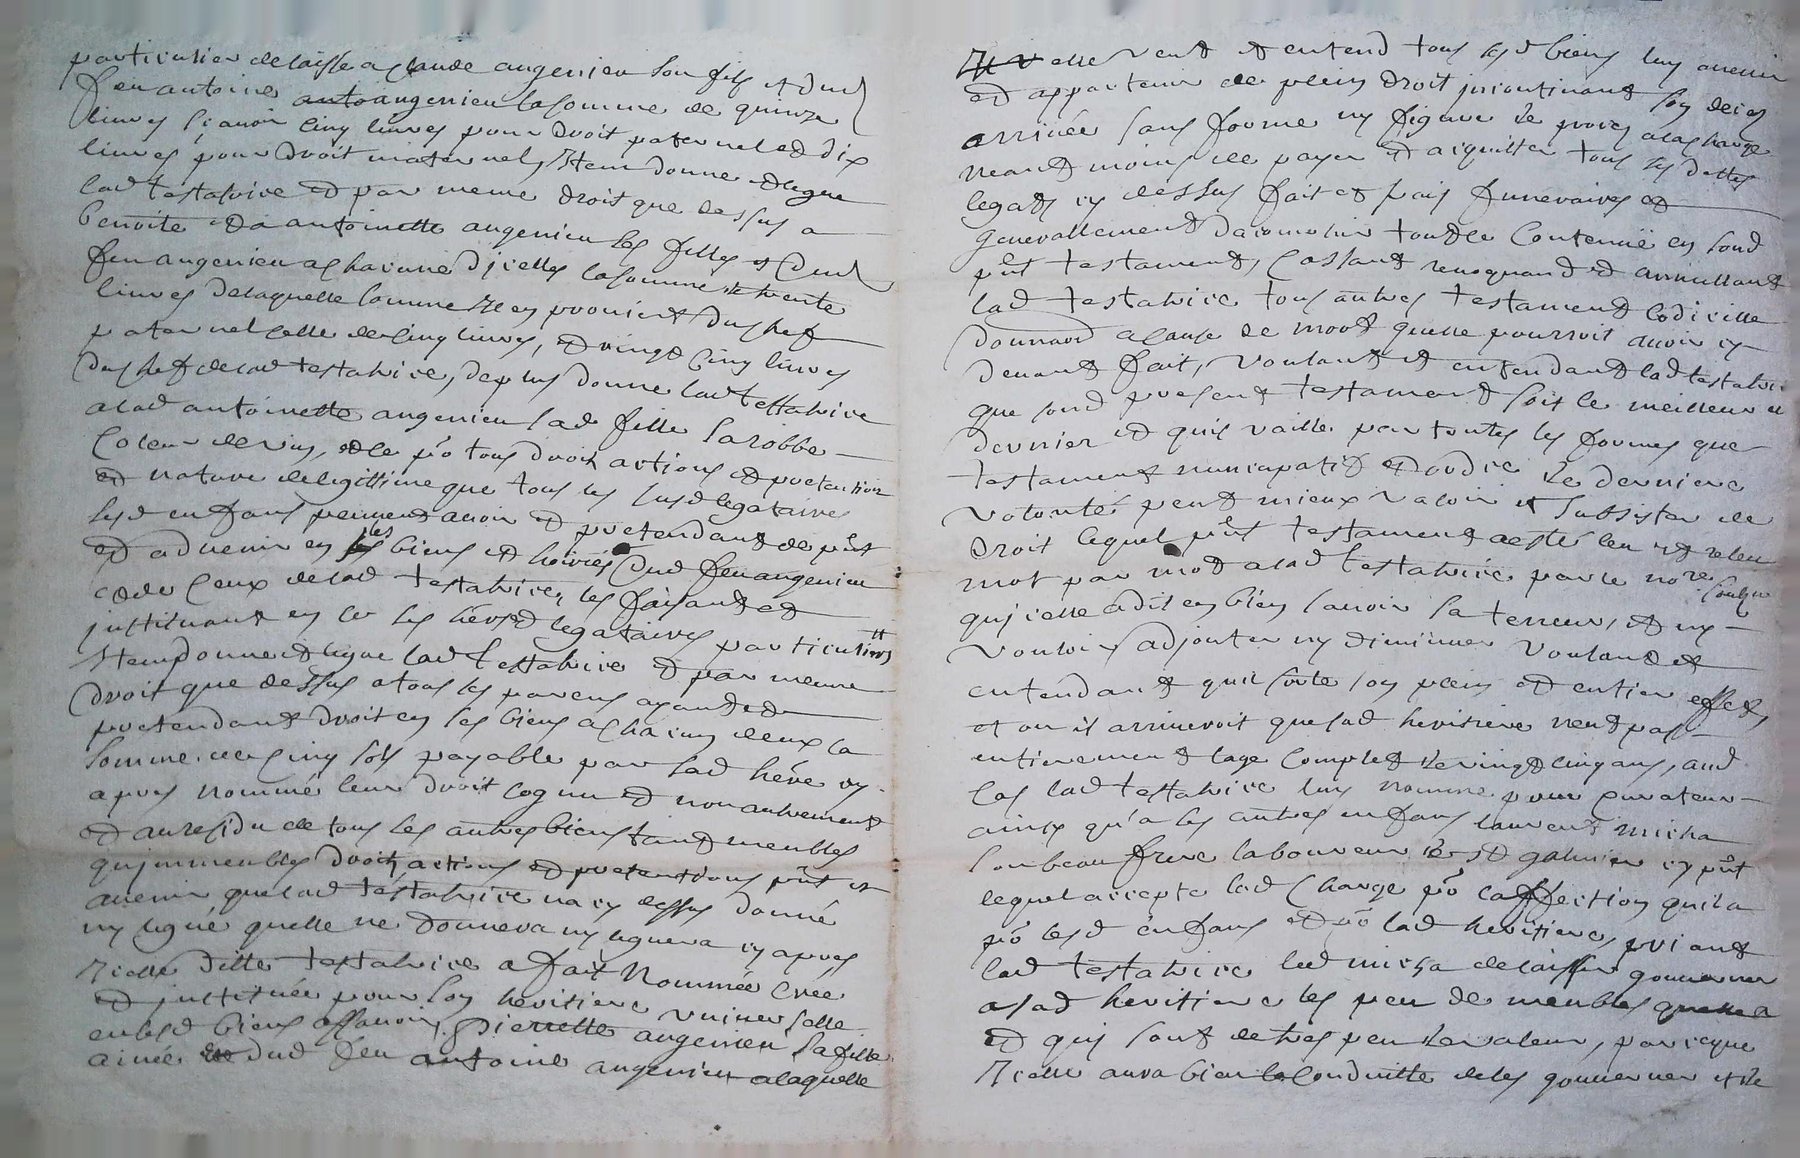 particulier delaisse a claude angenieu son fils et dud
feu antoine anto angenieu la somme de quinze
livres scavoir cinq livres pour droit paternel et dix
livres pour droit maternel, Item donne et legue
lad testatrice et par meme droit que dessus a
benoite et a antoinette angenieu ses filles et dud
feu angenieu a chacune d'icelles la somme de trente
livres de laquelle somme il en provient du chef
paternel celle de cinq livres, et vingt cinq livres
du chef de lad testatrice, de plus donne lad testatrice
a lad antoinette angenieu sad fille sa robbe
coleur de vin, et ce po tous droits actions et pretentions
et nature de legittime que tous les susd legataires
sesd enfans peuvent avoir et pretendant de pnt
et advenir en les biens et hoiries dud feu angenieu
et de ceux de lad testatrice, les faisant et
instituant en ce ses hers et legataires particuliers
Item donne et legue lad testatrice et par meme
droit que dessus a tous ses parens ayant et
pretendant droit en ses biens a chacun deux la
somme de cinq sols payable par sad here cy
apres nommé leur droit cognu et non autrement
et au residu de tous ses autres biens tant meubles
qu'immeubles droits, actions et pretentions pnt et
avenir, que lad testatrice na cy dessus donné
ny legué quelle ne donnera ny leguera cy apres
Icelle ditte testatrice a fait Nommée créé
et instituée pour son heritiere universelle
en lesd biens assavoir, pierrette angenieu sa fille
ainée dud feu antoine angenieu a laquelle
elle veut et entend tous sesd biens luy avenir
et appartenir de plein droit incontinant son deces
arrivée sans forme ny figure de proces a la charge
neantmoins de payer et acquitter tous ses dettes
legats cy dessus fait et frais funeraires et
generallement d'acomplir tout le Contenue en sond
pnt testament, Cassant revoquand et annullant
lad testatrice tous autres testament Codicille
donnaon a cause de mort quelle pourroit avoir cy
devant fait, voulant et entendant lad testatrice
que sond present testament soit le meilleur et
dernier et quil vaille par toutes les formes que
testament nuncupatif et ordre de derniere
volonté peut mieux valoir et subsister de
droit lequel pnt testament a esté leu et releu
mot par mot a lad testatrice par le nore
soubne
qu'icelle a dit en bien scavoir sa teneur, et ny
vouloir adjouter ny diminuer voulant et
entendant quil sorte son plein et entier effet,
et ou il arriveroit que sad heritiere neut pas
entierement lage complet de vingt cinq ans, aud
cas lad testatrice luy nomme pour curateur
ainsy qu'a ses autres enfans laurent micha
son beau frere laboureur de st galmier cy pnt
lequel accepte lad Charge po laffection quil a
po lesd enfans et po lad heritiere, priant
lad testatrice led micha de laisser gouverner
a sad heritiere les peu de meubles quelle a
et qui sont de tres peu de valeur, parceque
Icelle aura bien la conduitte de les gouverner et de